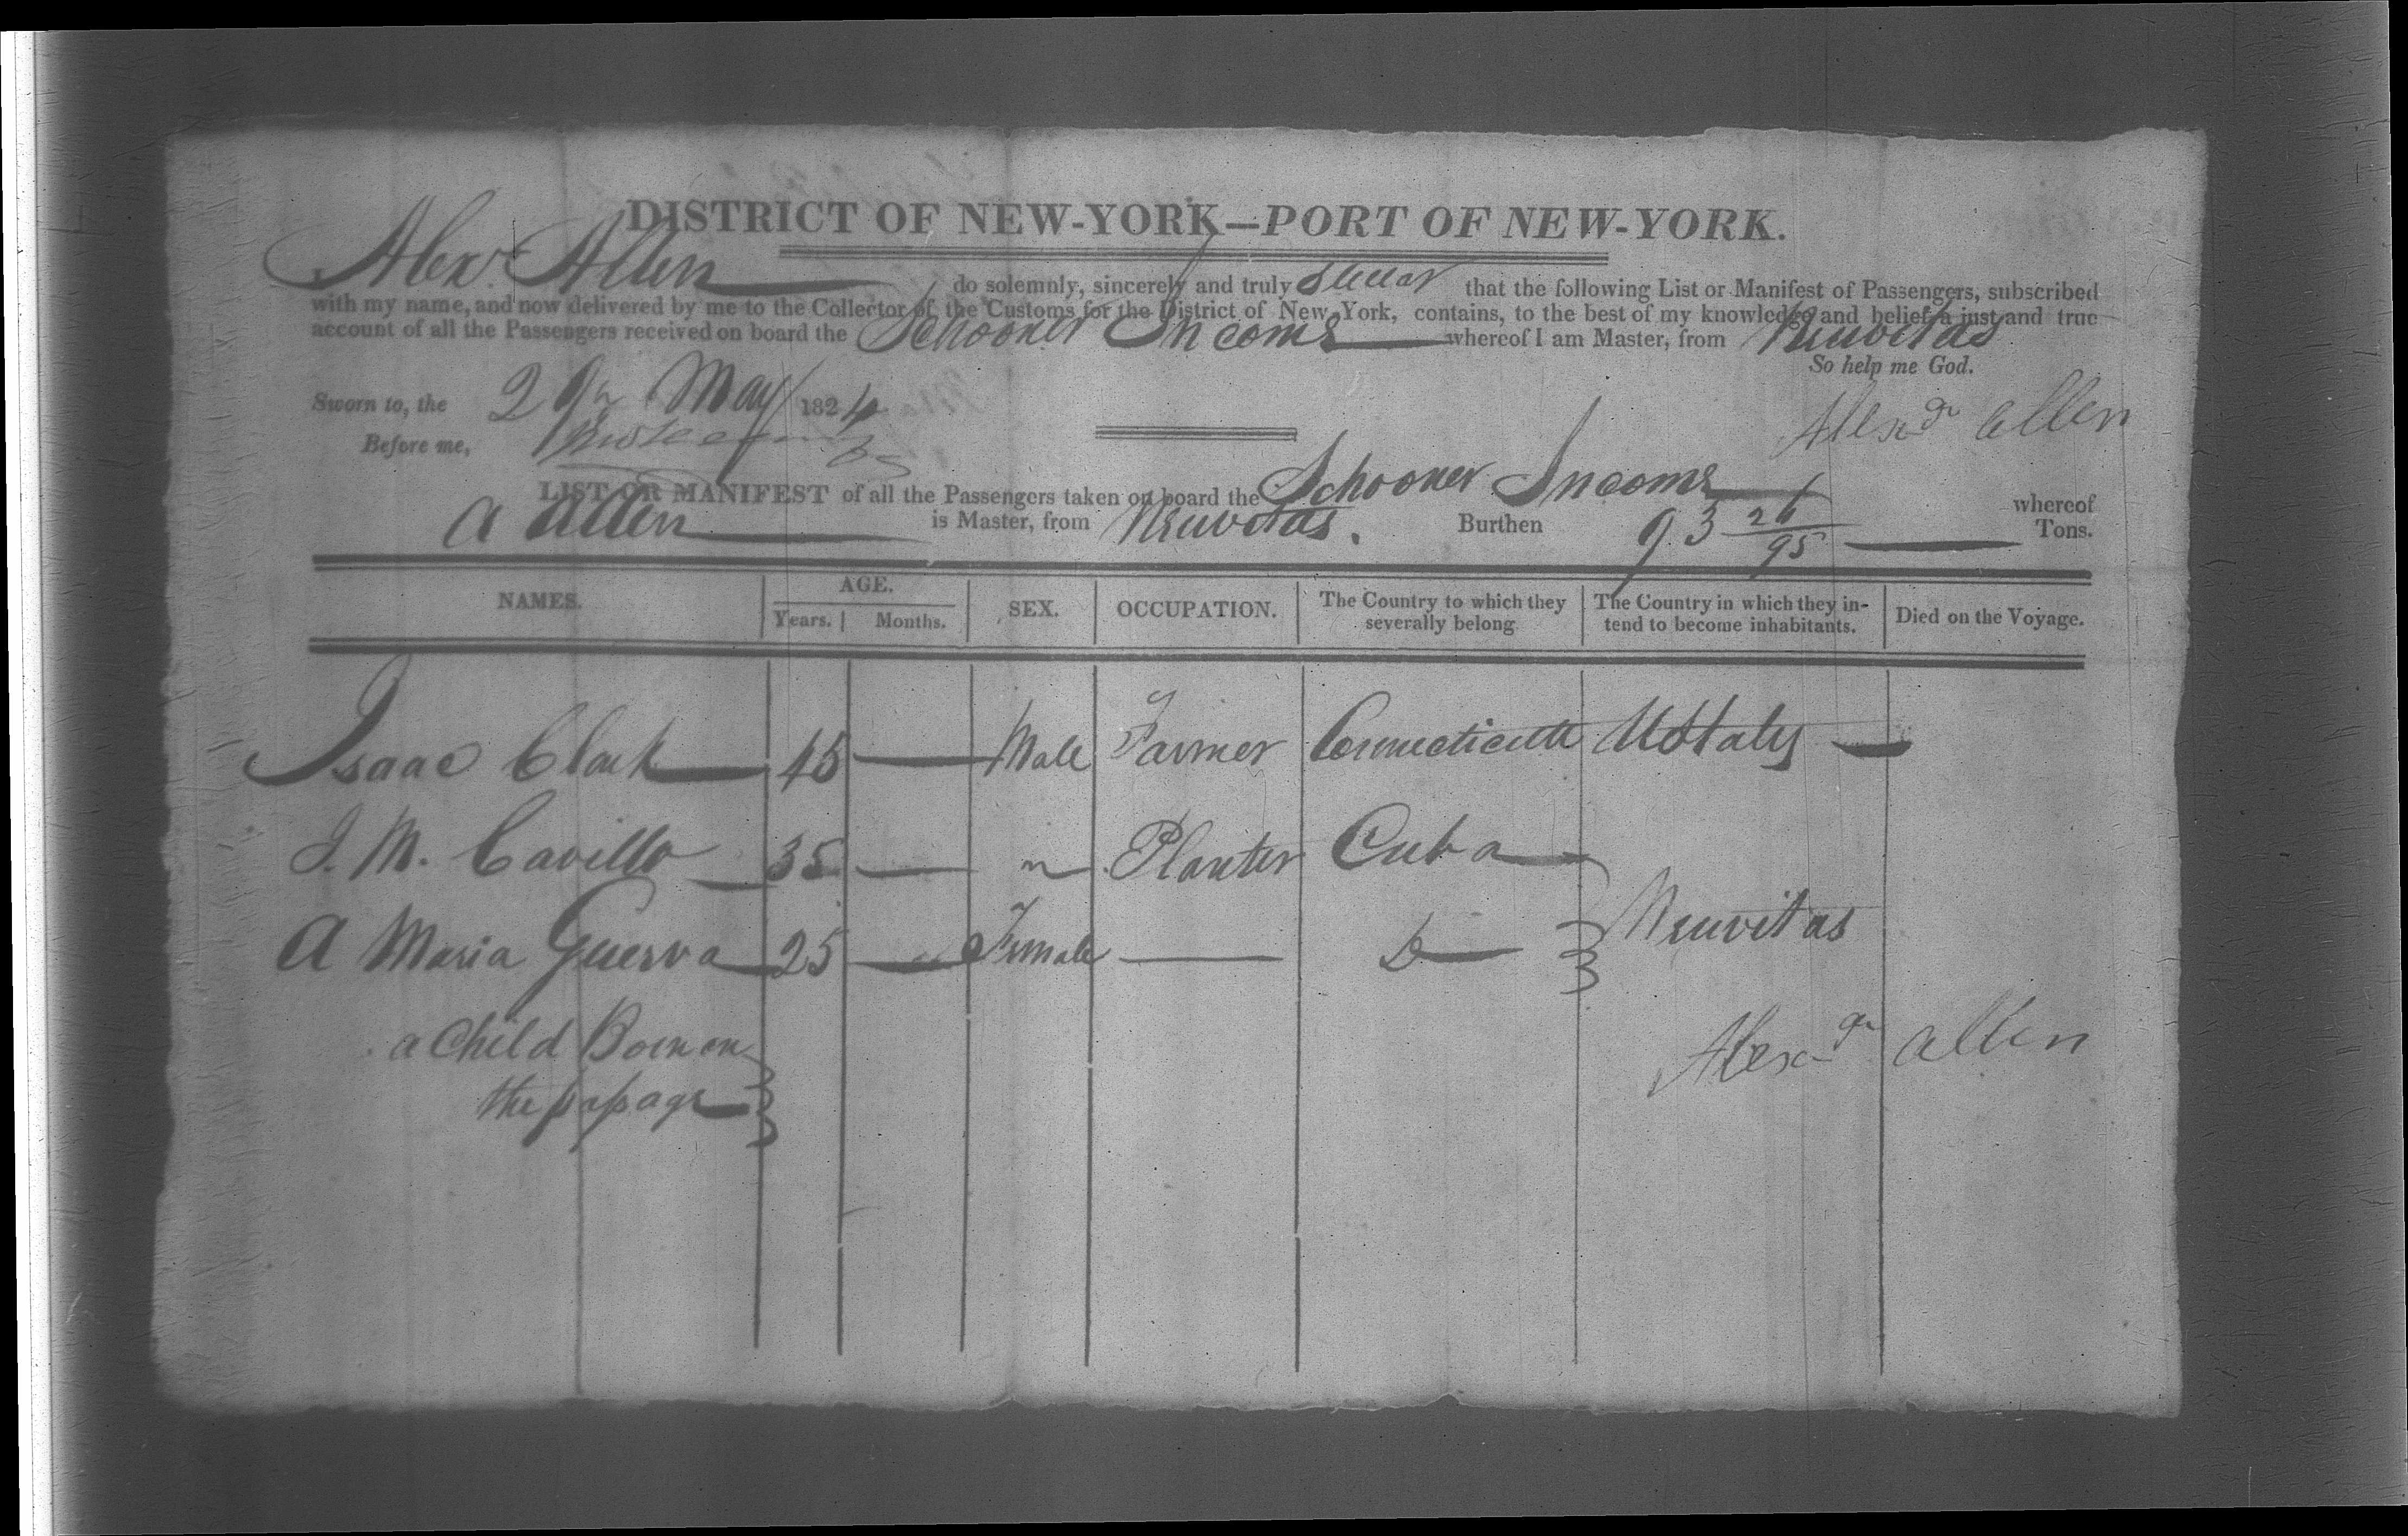 DISTRICT OF NEW-YORK—PORT OF NEW-YORK.
Alexr Allen do solemnly, sincerely and truly swear that the following List or Manifest of Passengers, subscribed
with my name, and now delivered by me to the Collector of the Customs for the District of New-York, contains, to the best of my knowledge and belief, a just and true
account of all the Passengers received on board the Schooner Income whereof I am Master, from Neuvitas
So help me God.
Sworn to, the 29h May 1824
Alexdr Allen
Before me,
LIST OR MANIFEST of all the Passengers taken on board the Schooner Income whereof
A Allen is Master, from Neuvitas. Burthen 93 26/95 Tons.
NAMES. AGE. SEX. OCCUPATION. The Country to which they severally belong The Country in which they intend to become inhabitants. Died on the Voyage.
Years. Months.
Isaac Clark 45 — Male Farmer Connecticutt UStates —
J. M. Cavillo 35 — " Planter Cuba
A Maria Guerra 25 — Female — Do Neuvitas
a Child Born on
the passage
Alexdr Allen